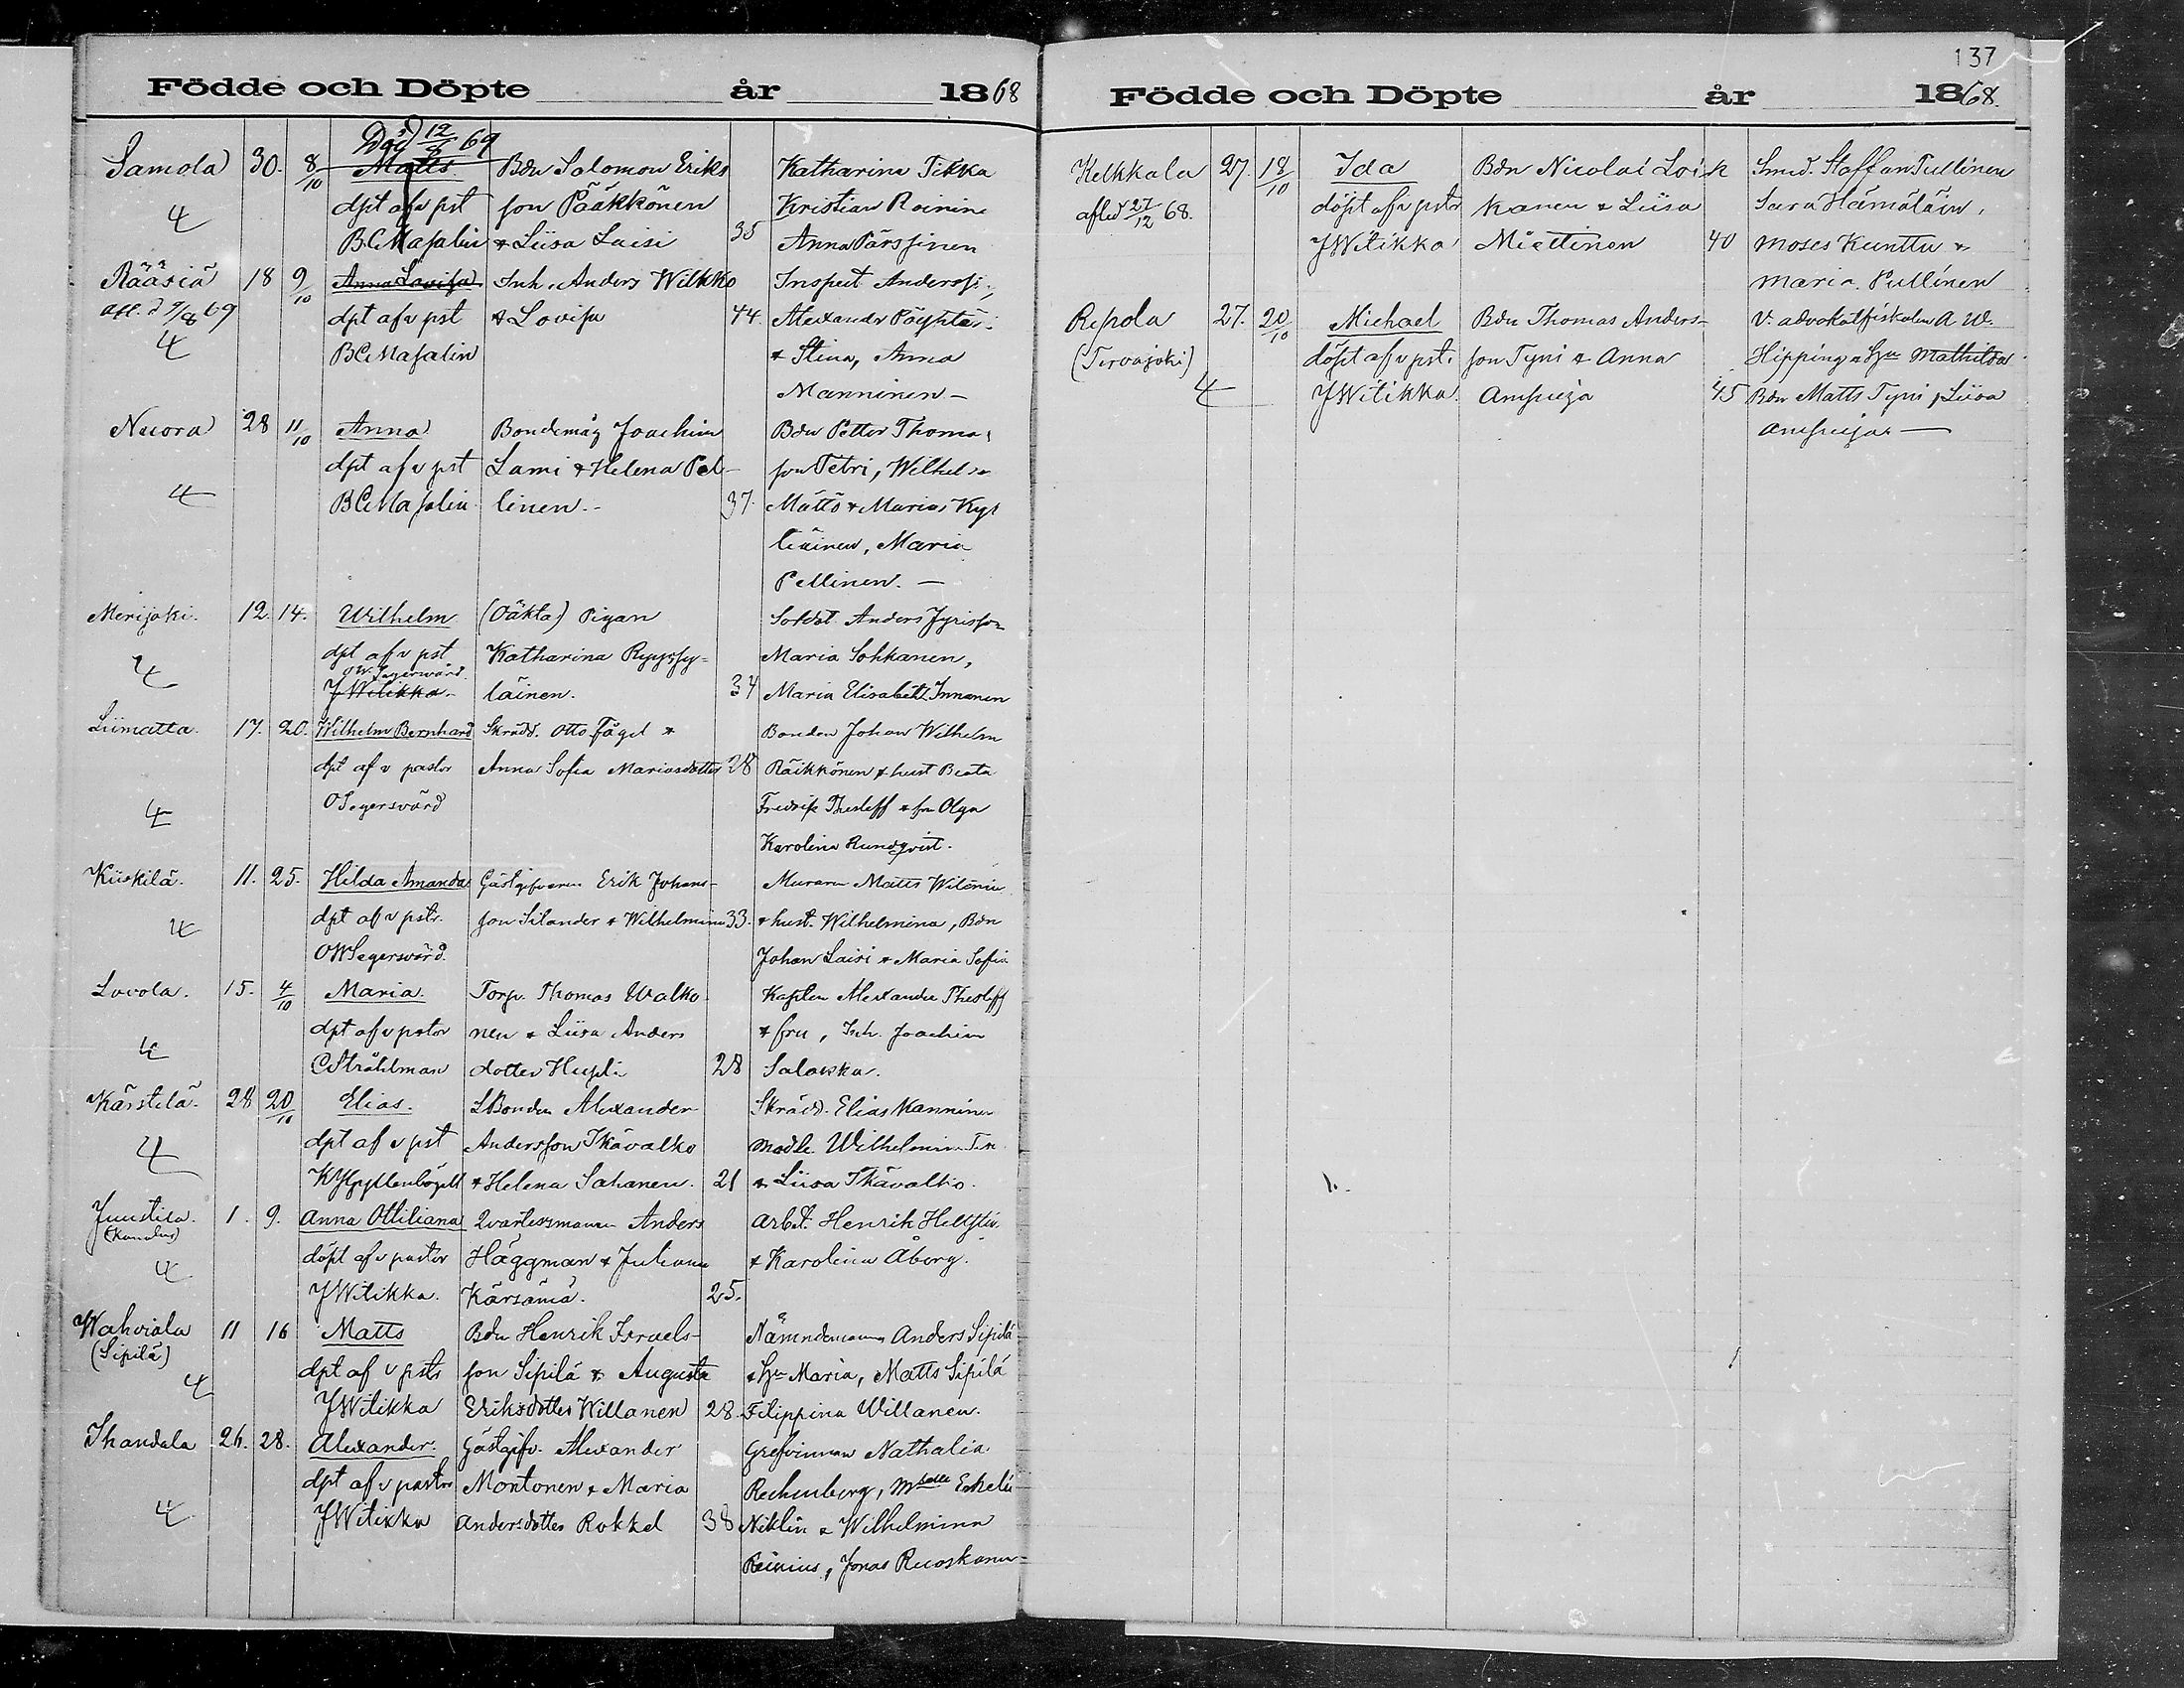 Födde och Döpte år 1868
Död 12/8 69
Samola 30. 8/10 Matts. Bdn Salomon Eriks Katharina Tikka
dpt af v pst son Pääkkönen Kristian Roinine
4 BCMasalin & Liisa Laisi 35 Anna Pärssinen
Rääsiä 18 9/10 Anna Lovisa Inh. Anders Wilkko Inspekt Anderss
afl. d 9/8 69 dpt af v pst & Lovisa 44.
4 BCMasalin & Stina, Anna
Manninen —
Nuora 28 11/10 Anna Bondemåg Joachim Bdn Petter Thomas
dpt af v pst Lami & Helena Pel- son Petri, Wilhelm
4 BCMasalin linen.- 37. Mättö & Maria Kyl
liäinen, Maria
Pellinen. —
Merijoki. 12. 14. Wilhelm (Oäkta) Pigan Soldat Anders Jyrisson
dpt af v pst Katharina Maria Sohkanen,
OWSegersvärd
4 JWitikka läinen. 34 Maria Elisabeth Innanen
Liimatta. 17. 20. Wilhelm Bernhard Skrädd. Otto Fågel & Bonden Johan Wilhelm
dpt af v pastor Anna Sofia Mariasdotter 28 Räikkönen & hust Beata
4 OSegersvärd Fredrik Thesleff & fru Olga
Karolina Rundqvist.
Kiiskilä. 11. 25. Hilda Amanda Gästgifvaren Erik Johans- Muraren Matts
4 dpt af v pstr. son Silander & Wilhelmina 33. & hust. Wilhelmina, Bdn
OWSegersvärd. Johan Laisi & Maria Sofia
Lovola. 15. 4/10 Maria. Torp. Thomas Walko- Kapten Alexander Thesleff
dpt af v pstor nen & Liisa Anders & fru, Inh. Joachim
4 CStråhlman dotter 28 Salaska.
Kärstilä. 28 20/10 Elias. LBonden Alexander Skrädd. Elias Manninen
4 dpt af v pst Andersson Ikävalko Madle. Wilhelmina
KHGyllenbögell & Helena Sahanen. 21 & Liisa Ikävalko.
Juustila. 1. 9. Anna Ottiliana Qvartersmannen Anders Arbet. Henrik
(Kanalen) döpt af v pastor Häggman & Juliana & Karolina Åberg.
4 JWitikka. Kärsämä. 25.
Wahviala 11 16 Matts Bdn Henrik Israels- Nämndemannen Anders Sipilä
(Sipilä) dpt af v pstr son Sipilä & Augusta & Hu Maria, Matts Sipilä
4 JWitikka Eriksdotter Willanen 28. Filippina Willanen.
Ihandala 26. 28. Alexander. Gästgifv. Alexander Grefvinnan Nathalia
dpt af v pastor Montonen & Maria Rechenberg, Mselle
4 JWitikka Andersdotter Rokkel 38 Niklin & Wilhelmina
Reinius, Jonas Ruoskanen
137
Födde och Döpte år 1868.
Kelkkala 27. 18/10 Ida Bdn Nicolai Loik Smed. Staffan Pullinen
afled 27/12 68. döpt af v pstr kanen & Liisa Sara Hämäläin,
JWitikka Miettinen 40 Moses Kunttu &
Maria Pullinen
Repola 27. 20/10 Michael Bdn Thomas Anders- V. advokatfiskalen A. W.
(Tervajoki) döpt af v pst. son Tyni & Anna Hipping & Hu Mathilda
4 JWitikka. Ampuja 45 Bdn Matts Tyni, Liisa
Ampuja. —